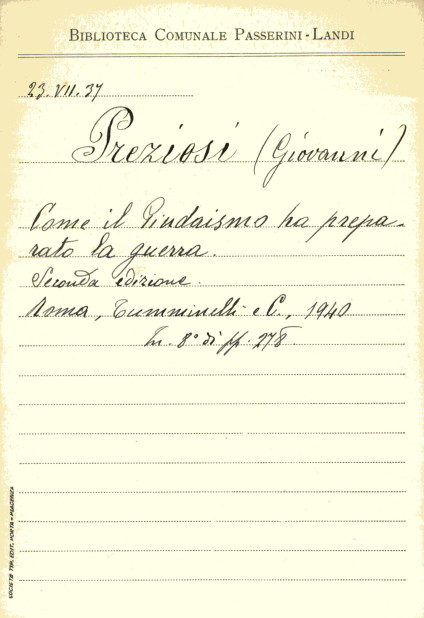 BIBLIOTECA COMUNALE PASSERINI-LANDI
23.VII.37
Preziosi (Giovanni)
Come il Giudaismo ha prepa-
rato la guerra.
Seconda edizione.
Roma, Tumminelli e C., 1940
In. 8° di pp. 278.
SOCIETÀ TIP. EDIT. PORTA - PIACENZA